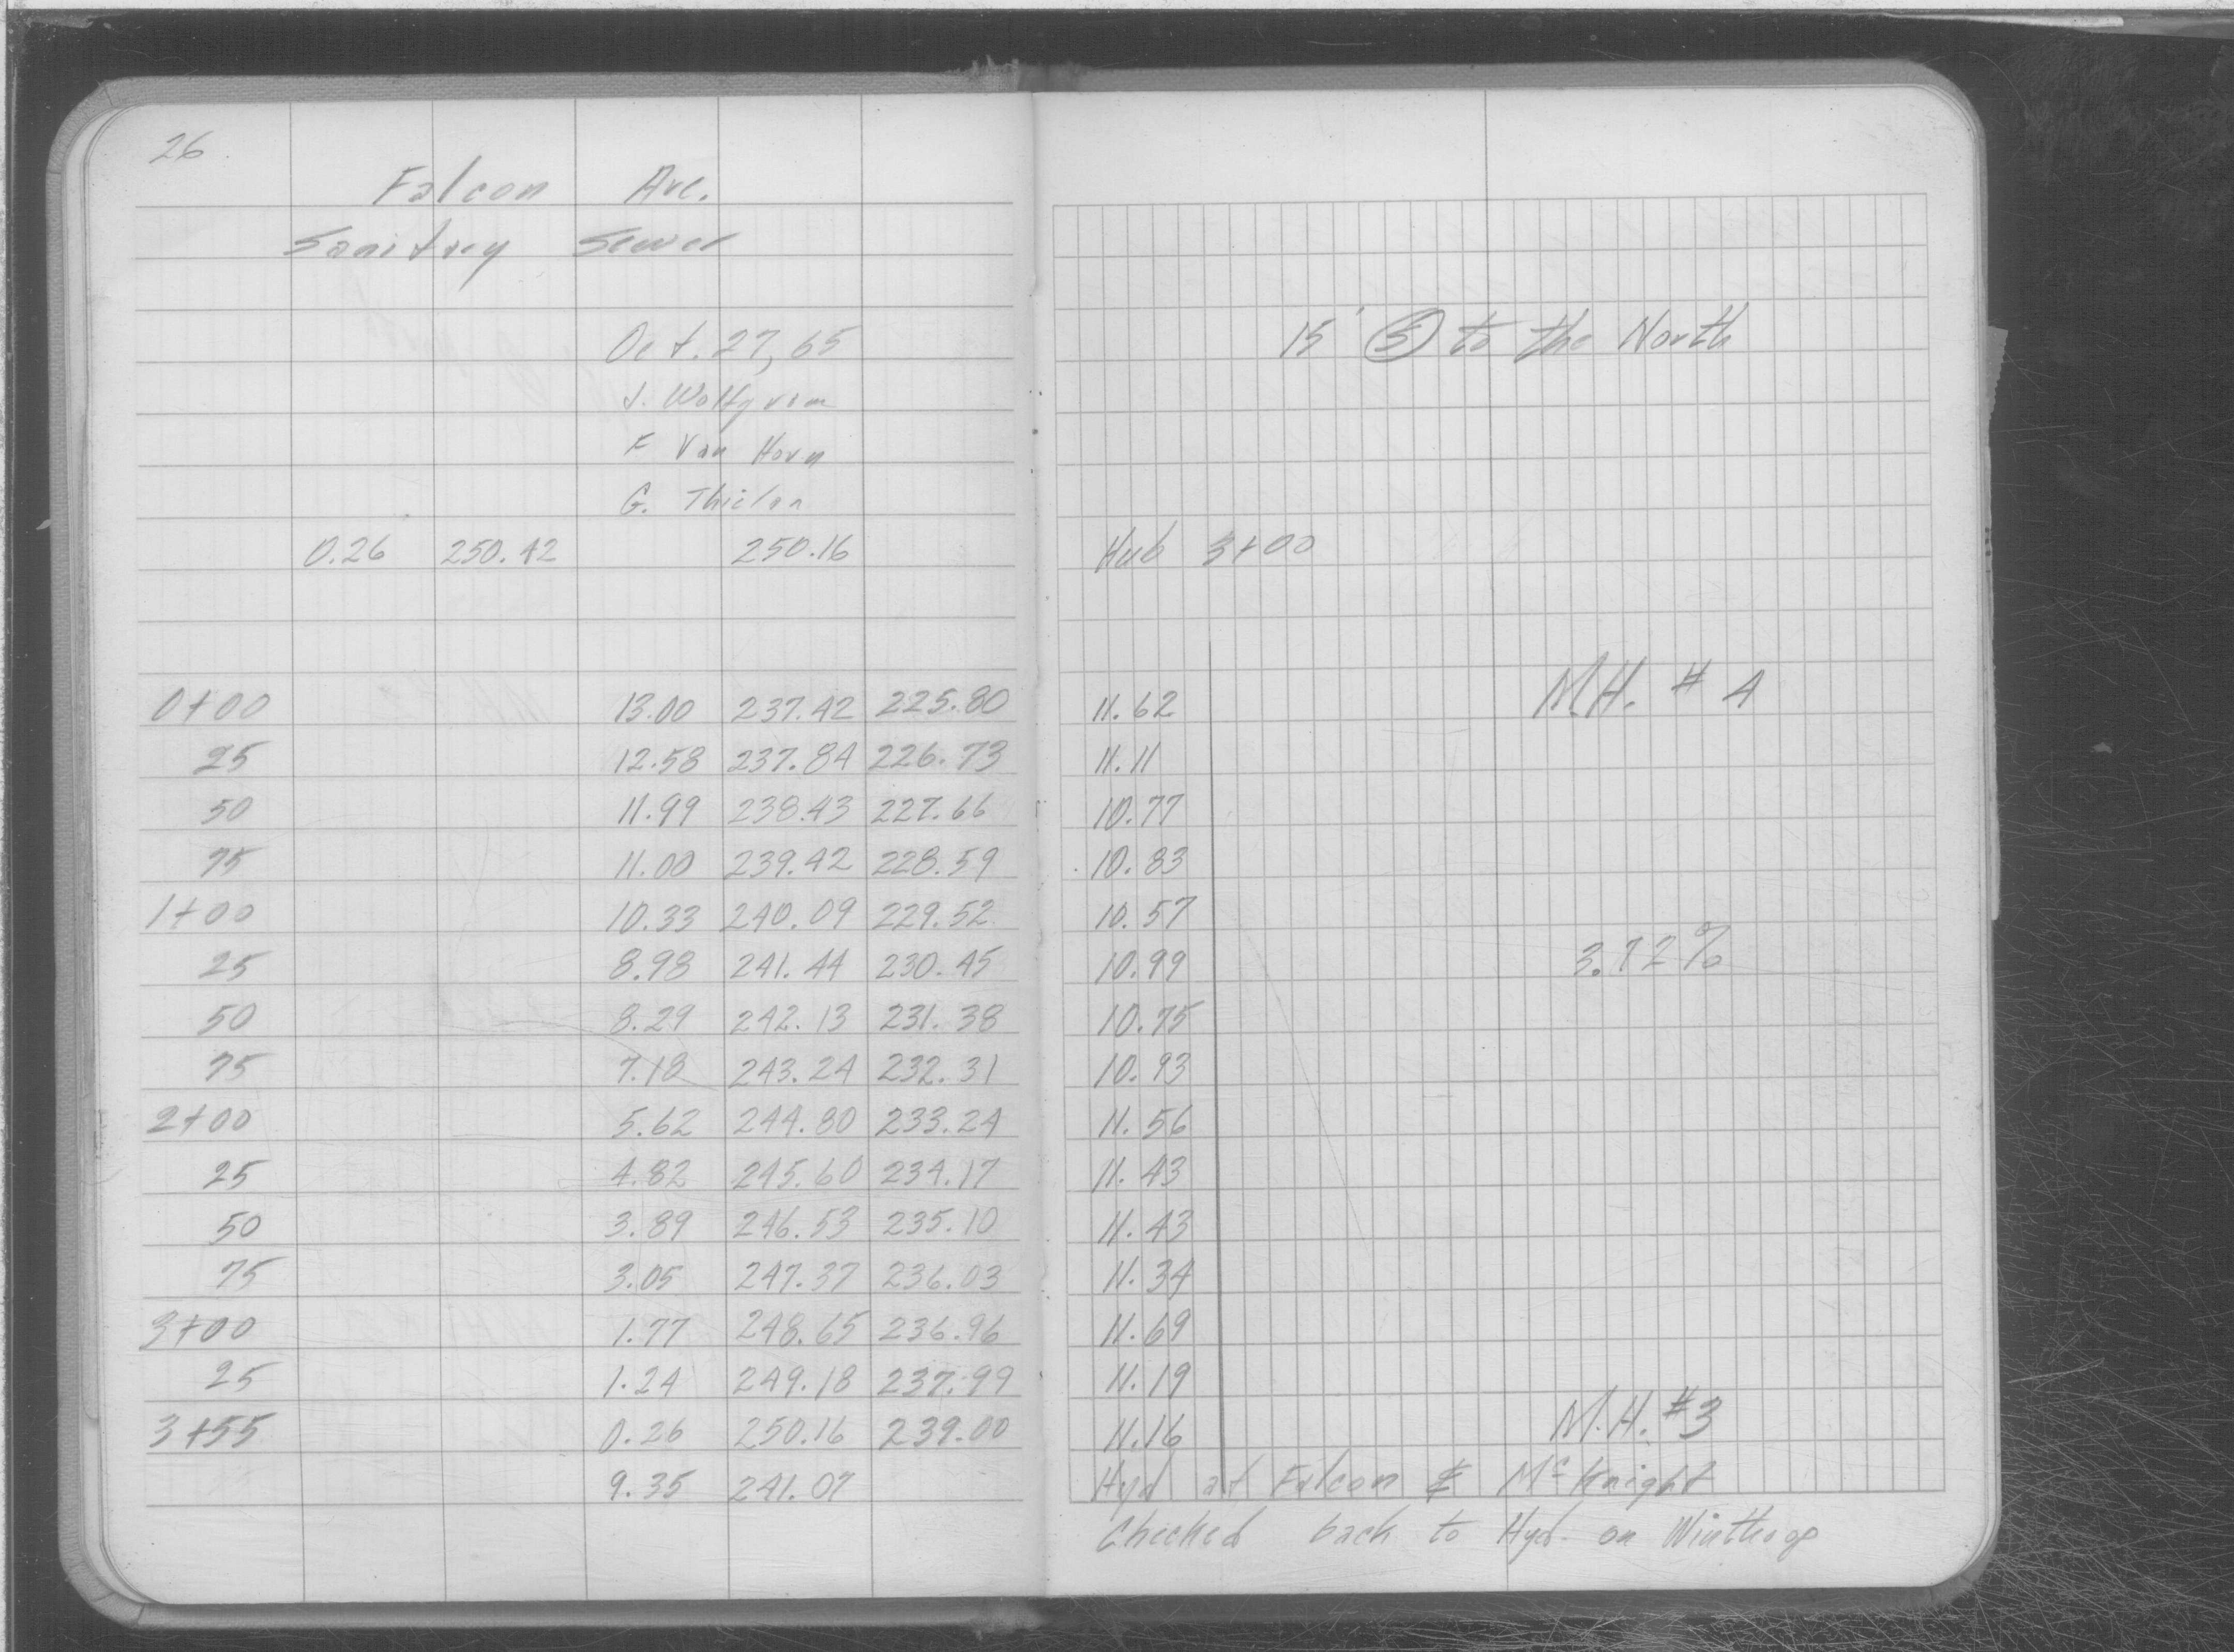 26
Falcon Ave.
Sanitrey Sewer
Oct. 27, 65
15' Ⓢ to the North
J. Wolfgram
F Van Horn
G. Thielan
0.26 250.42 250.16 Hub 3+00
0+00 13.00 237.42 225.80 11.62 M.H. # 4
25 12.58 237.84 226.73 11.11
50 11.99 238.43 227.66 10.77
75 11.00 239.42 228.59 10.83
1+00 10.33 240.09 229.52 10.57
25 8.98 241.44 230.45 10.99 3.72%
50 8.29 242.13 231.38 10.75
75 7.18 243.24 232.31 10.93
2+00 5.62 244.80 233.24 11.56
25 4.82 245.60 234.17 11.43
50 3.89 246.53 235.10 11.43
75 3.05 247.37 236.03 11.34
3+00 1.77 248.65 236.96 11.69
25 1.24 249.18 237.99 11.19
3+55 0.26 250.16 239.00 11.16 M.H. #3
9.35 241.07 Hyd at Falcon & McKnight
Checked back to Hyd. on Winthrop